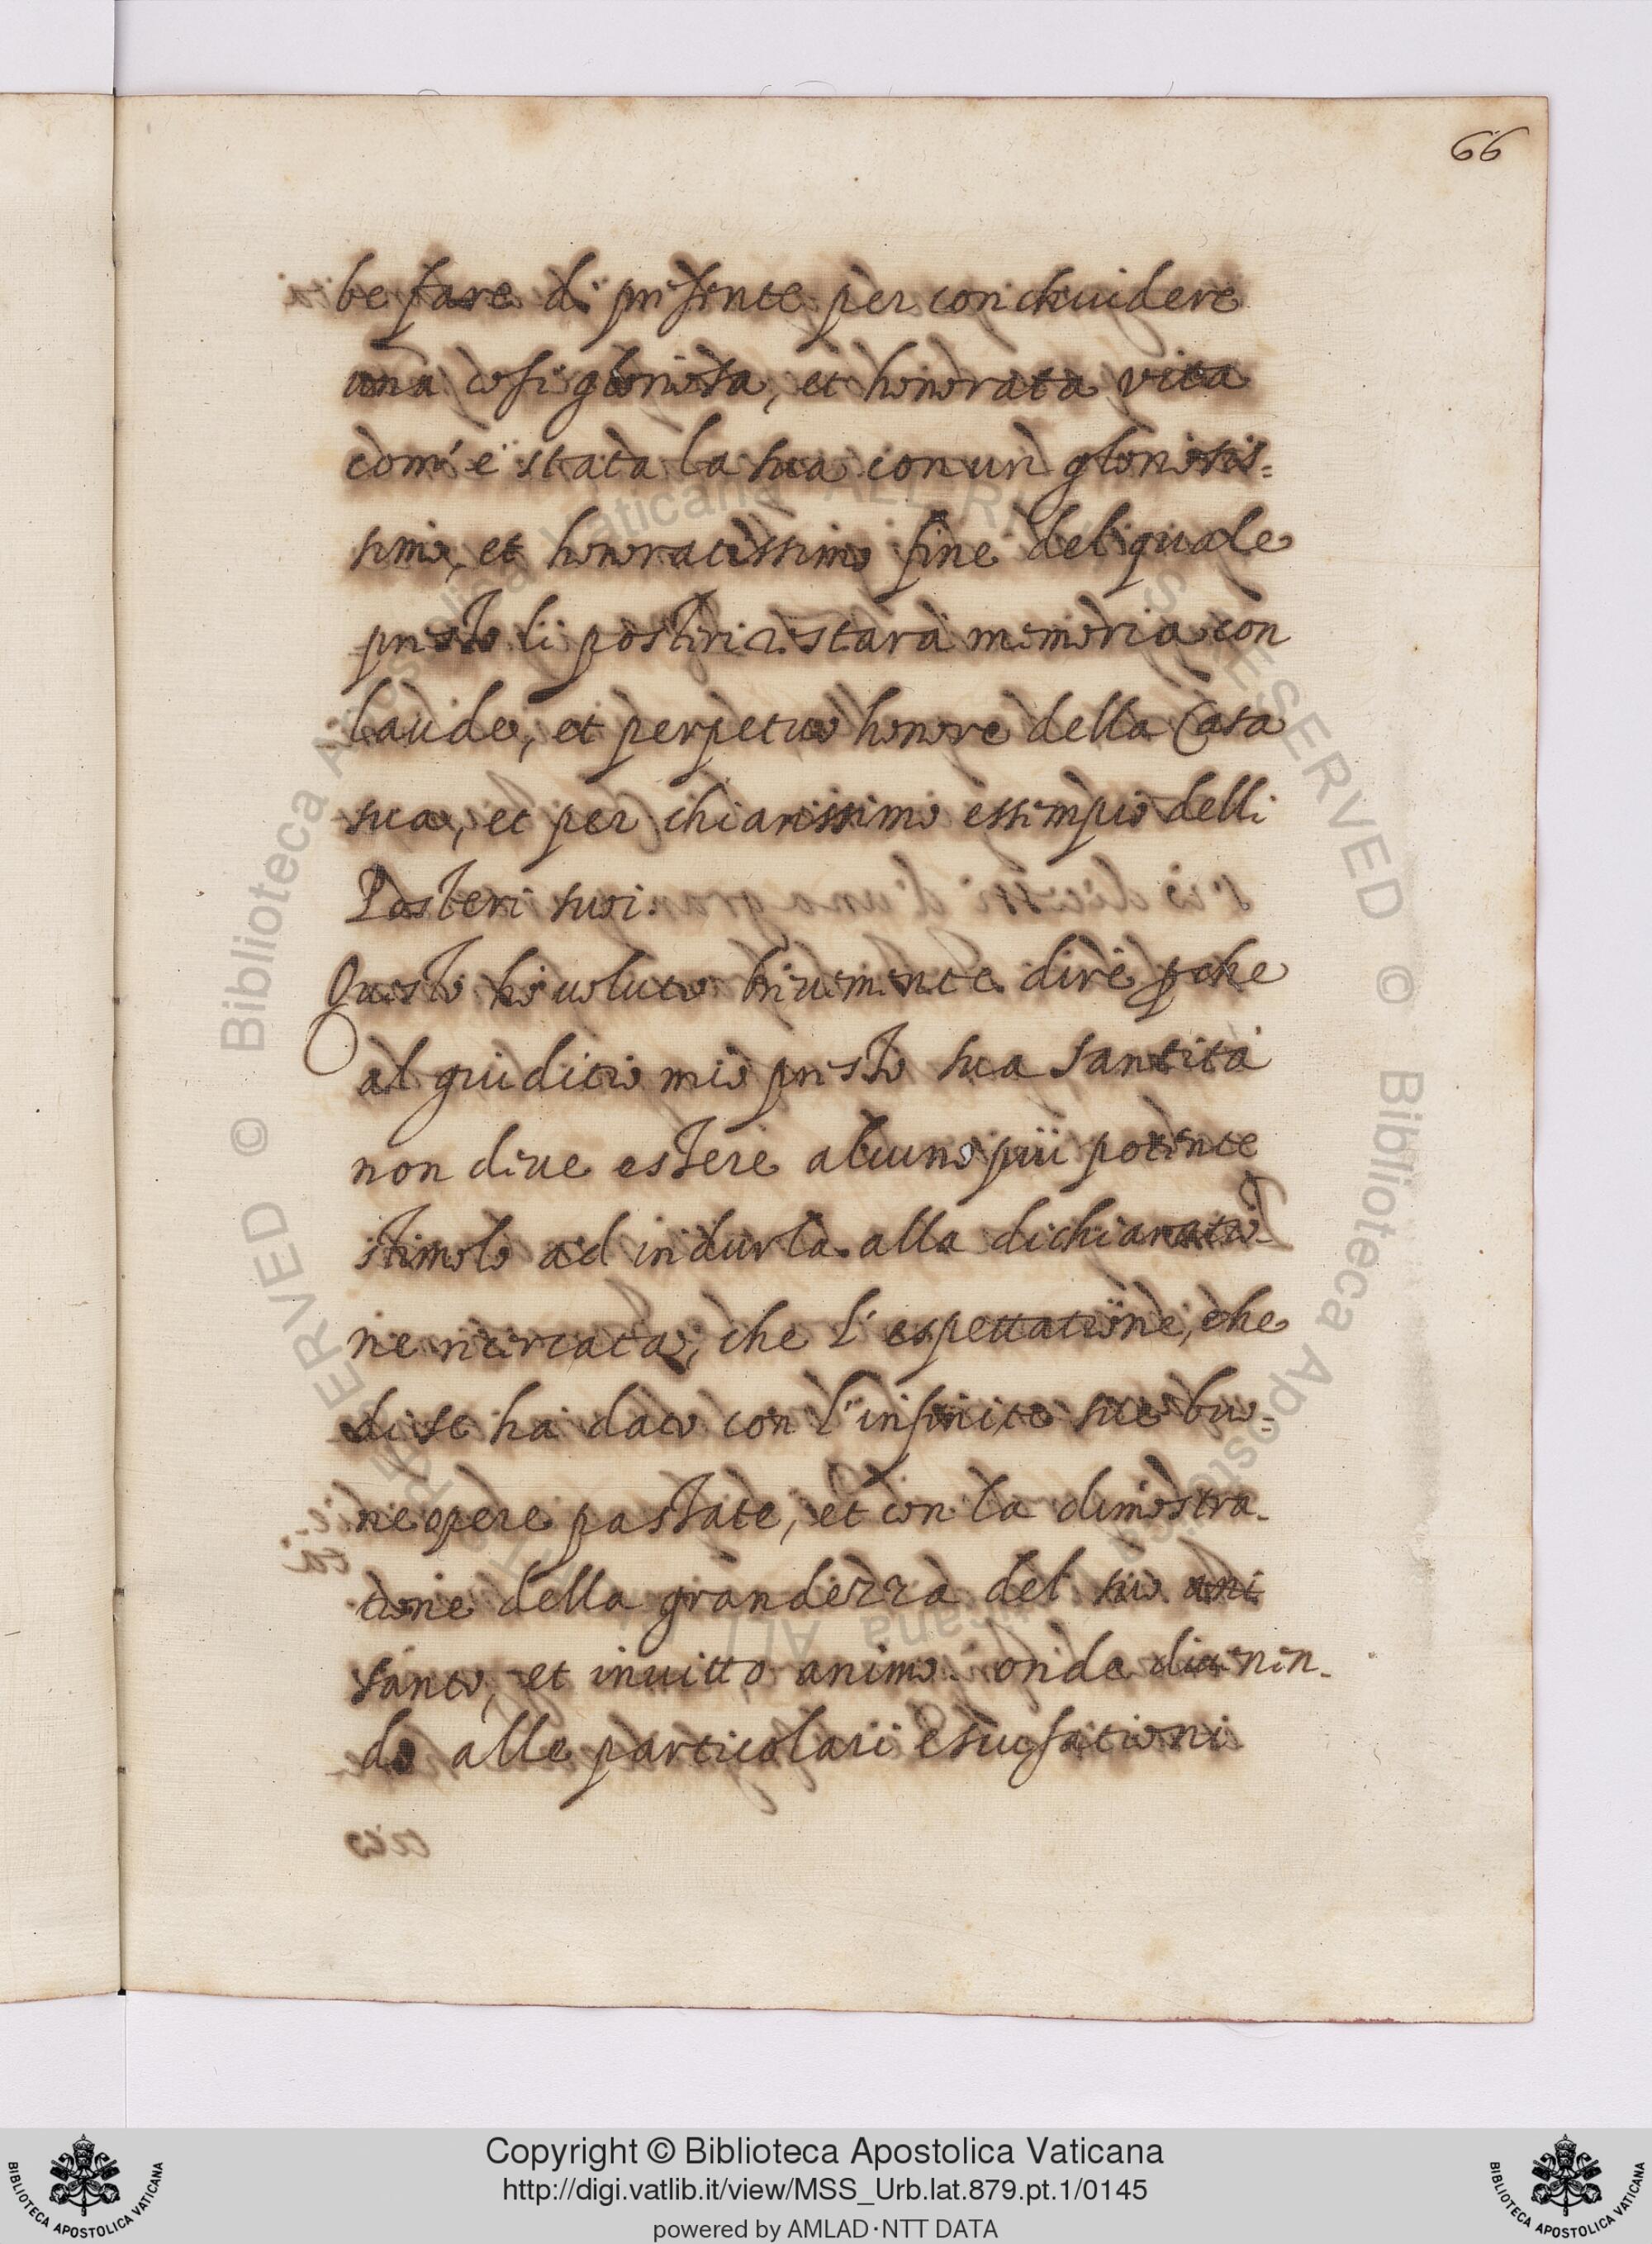 66
be fare di presente per conchiudere
una cosi gloriosa, et honorata vita
com'è stata la sua con un gloriosis=
simo, et honoratissimo fine del quale
presto li posteri restarà memoria con
laude, et perpetuo honore della Casa
sua, et per chiarissimo essempio delli
Posteri suoi.
Questo hò uoluto breuemente dire pche
al giuditio mio presto sua santità
non deue essere alcuno più potente
stimolo ad indurla alla dichiaratio-
ne ricercata, che l'espettatione, che
di se ha dato con l'infinite sue buo-
ne opere passate, et con la dimostra-
tione della grandezza del suo
santo, et inuitto animo. onde
do alle particolari
Copyright © Biblioteca Apostolica Vaticana
http://digi.vatlib.it/view/MSS_Urb.lat.879.pt.1/0145
powered by AMLAD·NTT DATA